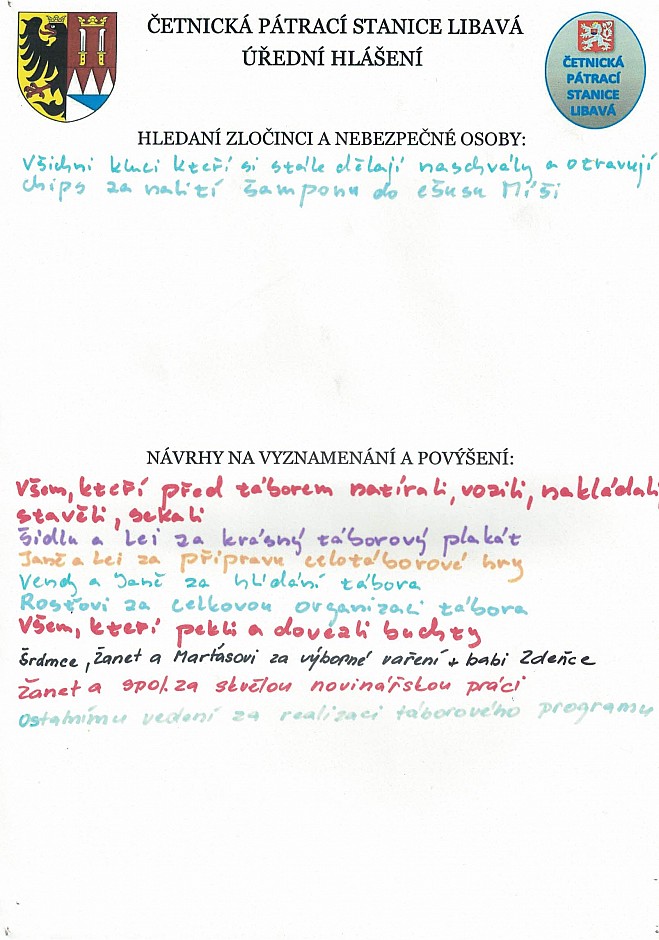 ČETNICKÁ PÁTRACÍ STANICE LIBAVÁ
ÚŘEDNÍ HLÁŠENÍ
ČETNICKÁ
PÁTRACÍ
STANICE
LIBAVÁ
HLEDANÍ ZLOČINCI A NEBEZPEČNÉ OSOBY:
Všichni kluci kteří si stále dělají naschvály a otravují
chips za nalití šamponu do ešusu Míši
NÁVRHY NA VYZNAMENÁNÍ A POVÝŠENÍ:
Všem, kteří před táborem natírali, vozili, nakládali
stavěli, sekali
Šidlu a Lei za krásný táborový plakát
Janě a Lei za přípravu celotáborové hry
Vendy a Janě za hlídání tábora
Rosťovi za celkovou organizaci tábora
Všem, kteří pekli a dovezli buchty
Šrdmce, Žanet a Marťasovi za výborné vaření + babi Zdeňce
Žanet a spol. za skvělou novinářskou práci
Ostatnímu vedení za realizaci táborového programu